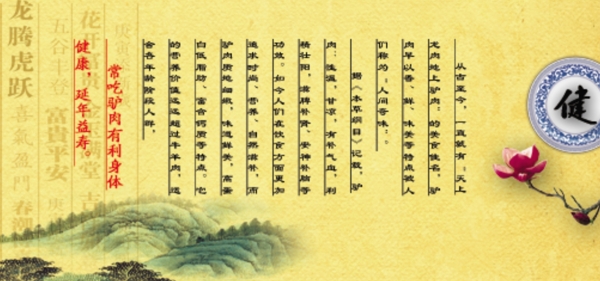 健
从古至今，一直就有“天上
龙肉地上驴肉”的美食佳名，驴
肉早以香、鲜、味美等特点被人
们称为“人间奇味”。
据《本草纲目》记载，驴
肉：性温，甘凉，有补气血，利
精壮阳，滋脾补肾，安神补脑等
功效。如今人们在饮食方面更加
追求时尚、营养、自然滋补，而
驴肉质地细嫩，味道鲜美，高蛋
白低脂肪、富含钙质等特点。它
的营养价值远远超过牛羊肉，适
合各年龄阶段人群，
常吃驴肉有利身体
健康，延年益寿。
五谷丰登 富貴平安
龙腾虎跃 喜氣盈門